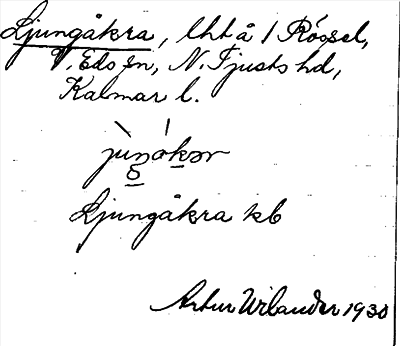 Ljungåkra, lht å / Rössel,
V. Eds sn, N. Tjusts hd,
Kalmar l.
Ljungåkra kb
Artur Wilander 1930